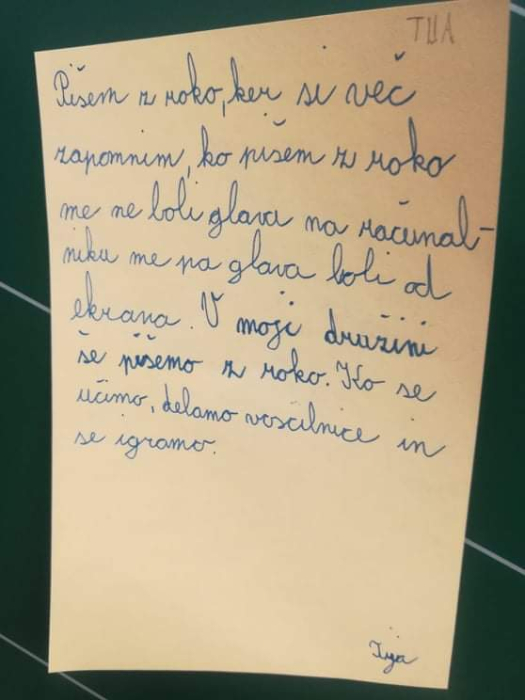 TIJA
Pišem z roko, ker si več
zapomnim, ko pišem z roko
me ne boli glava na računal-
niku me pa glava boli od
ekrana. V moji družini
še pišemo z roko. Ko se
učimo, delamo voščilnice in
se igramo.
Tija